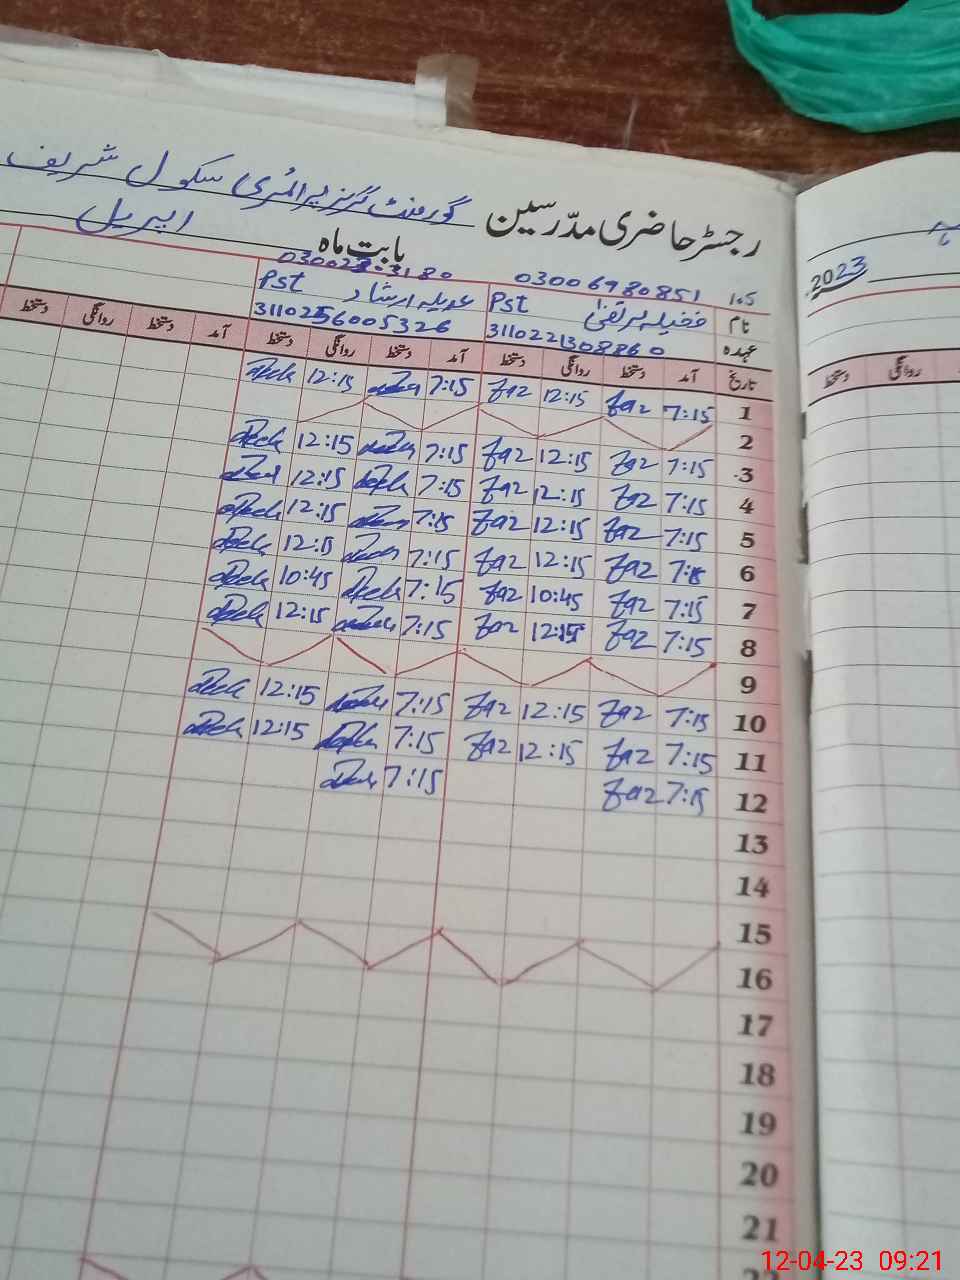 گورمنٹ گرلز پرائمری سکول شریف
رجسٹر حاضری مدّرسین
بابت ماہ اپریل 2023
03006980851
نام Pst
عہدہ 3110221308860
Pst ارشاد
3110256005326
تاریخ آمد دستخط روانگی دستخط آمد دستخط روانگی دستخط آمد دستخط روانگی دستخط
دستخط روانگی
1 7:15 Faz 12:15 Faz 7:15 12:15
2
3 7:15 Faz 12:15 Faz 7:15 12:15
4 7:15 Faz 12:15 Faz 7:15 12:15
5 7:15 Faz 12:15 Faz 7:15 12:15
6 7:15 Faz 12:15 Faz 7:15 12:15
7 7:15 Faz 10:45 Faz 7:15 10:45
8 7:15 Faz 12:15 Faz 7:15 12:15
9
10 7:15 Faz 12:15 Faz 7:15 12:15
11 7:15 Faz 12:15 Faz 7:15 12:15
12 7:15 Faz 7:15
13
14
15
16
17
18
19
20
21
12-04-23 09:21